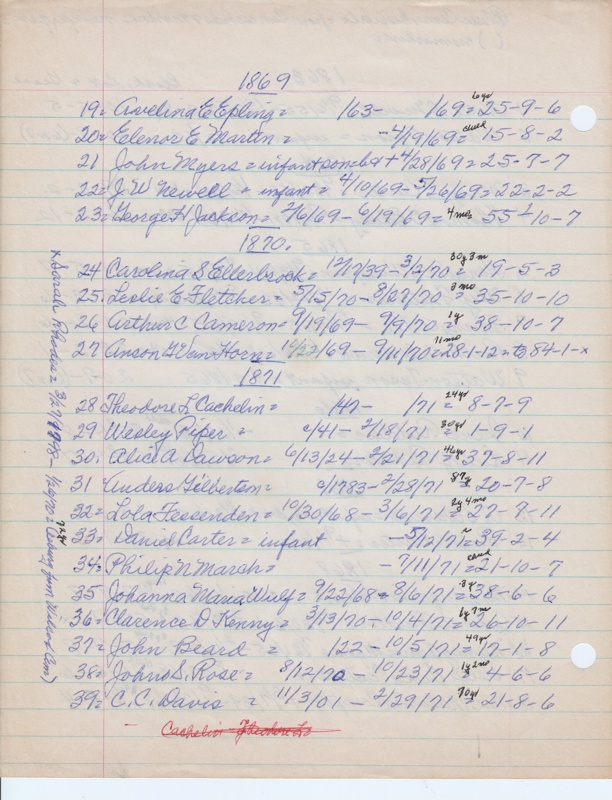 1869
19= Avelina E Epling = /63- /69 = 6yo 25-9-6
20= Elenor E Martin = -4/19/69= child 15-8-2
21 John Myers = infant son=b&+4/28/69=25-7-7
22= J. W Newell = infant = 4/10/69-5/26/69=22-2-2
23= George H Jackson= 2/6/69-6/19/69= 4mos 55-10-7
1870.
24 Carolina S Ellerbrock= 12/17/39-3/2/70= 30y 3m 19-5-3
25= Leslie E Fletcher = 5/15/70-8/27/70= 3mo 35-10-10
26 Arthur C Cameron= 9/19/69- 9/9/70= 1y 38-10-7
27 Anson G Van Horn= 10/22/69-9/11/70= 11mo 28-1-12=to 84-1-x
1871
28= Theodore L Cachelin= /47- /71= 24yo 8-7-9
29 Wesley Piper = c/41-2/18/71= 30yo 1-9-1
30= Alice A Dawson= 6/13/24-2/21/71= 46yo 37-8-11
31 Anders Gilbertson= c/1783-2/28/71= 87y 20-7-8
32= Lola Fessenden= 10/30/68-3/6/71= 2y 4mo 27-9-11
33= Daniel Carter= infant -5/12/71= 39-2-4
34= Philip N March= -7/11/71= child 21-10-7
35 Johanna Maria Wulf= 9/22/68=8/6/71= 3y 38-6-6
36= Clarence D Kenny= 3/13/70-10/4/71= 1y 7m 26-10-11
37= John Beard = 122-10/5/71= 49yo 17-1-8
38= John S. Rose= 8/12/70-10/23/71= 1y 2mo 4-6-6
39= C.C. Davis = 11/3/01-2/29/71= 70yo 21-8-6
Cachelin Theodore L=
x Sarah Rhodes= 3/27/1798-1/26/70= 72yo (Cem)